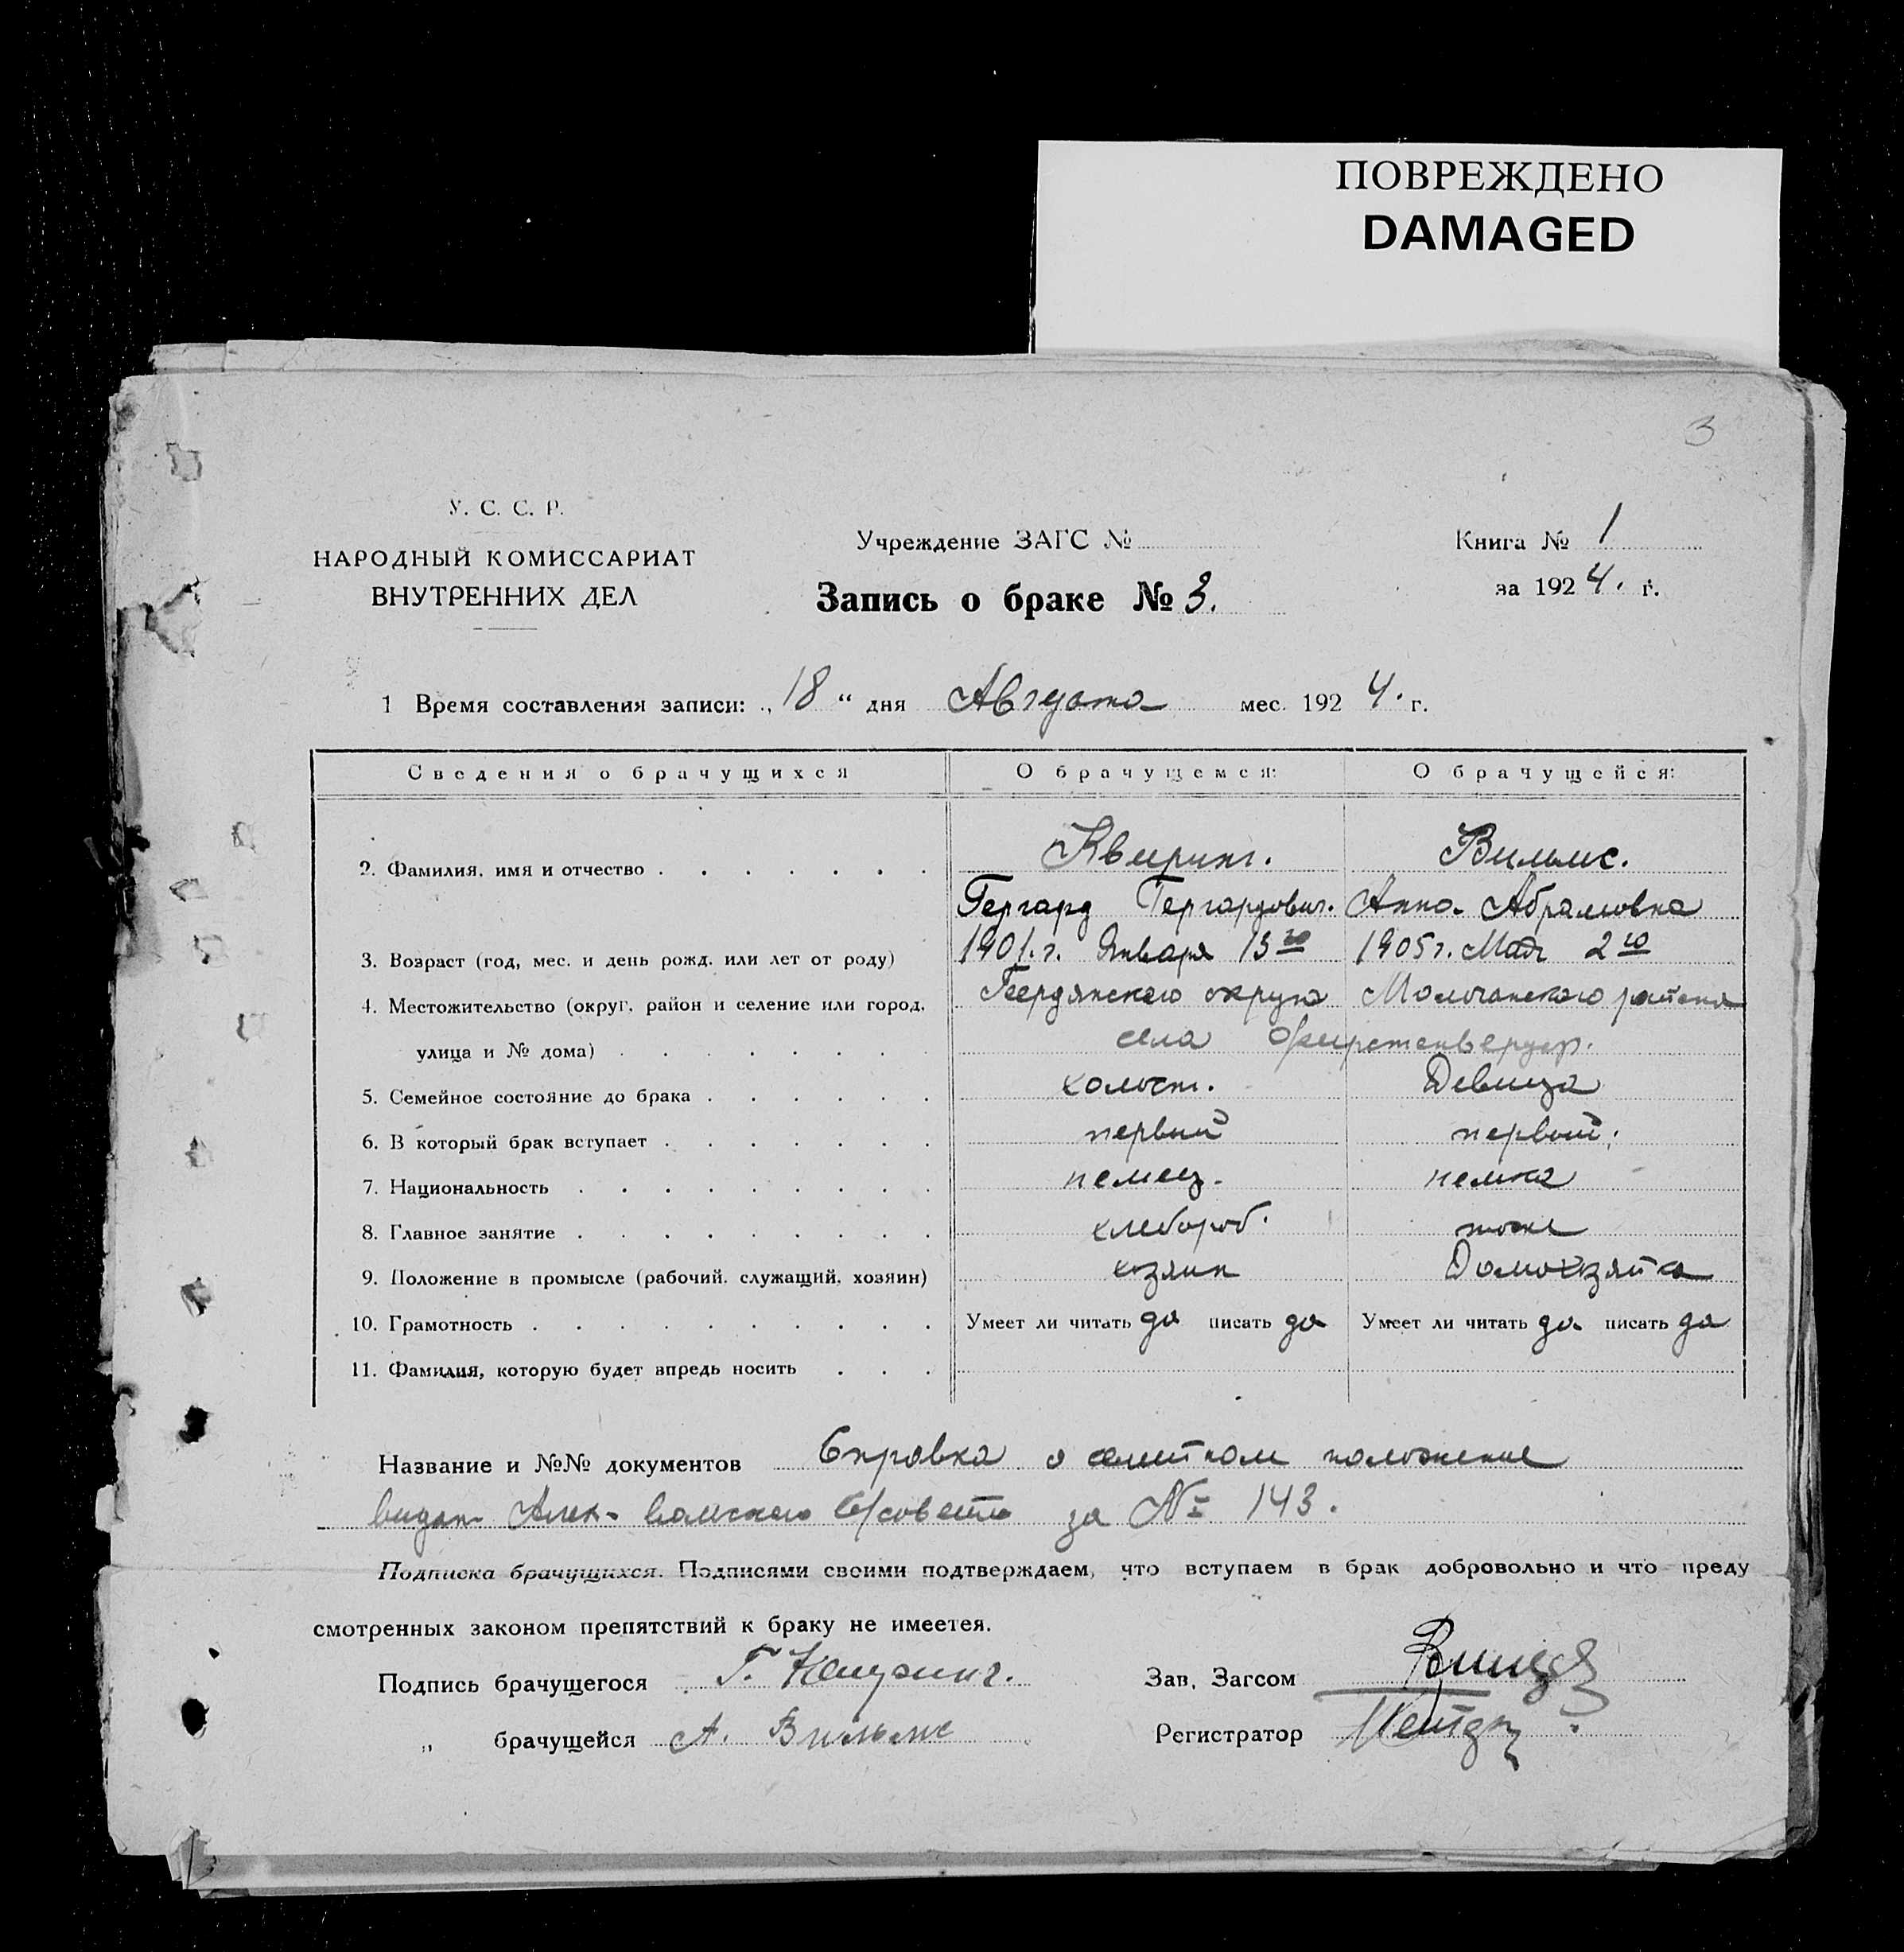 ПОВРЕЖДЕНО
DAMAGED
3
У. С. С. Р.
НАРОДНЫЙ КОМИССАРИАТ
ВНУТРЕННИХ ДЕЛ
Учреждение ЗАГС №
Запись о браке № 3.
Книга № 1
за 1924. г.
1 Время составления записи: „ 18 “ дня Августа мес. 1924. г.
Сведения о брачущихся О брачущемся: О брачущейся:
2. Фамилия, имя и отчество Квиринг. Вильмс.
Гергард Гергардович. Анна Абрамовна
3. Возраст (год, мес. и день рожд. или лет от роду) 1901. г. Января 13го 1905 г. Мая 2го
4. Местожительство (округ, район и селение или город, Бердянского округа Молочанского района
улица и № дома) села Фирстенвердер.
5. Семейное состояние до брака холост. Девица
6. В который брак вступает первый первый.
7. Национальность немец. немка
8. Главное занятие хлебороб. тоже
9. Положение в промысле (рабочий, служащий, хозяин) хозяин Домохозяйка
10. Грамотность Умеет ли читать да писать да Умеет ли читать да писать да
11. Фамилия, которую будет впредь носить
Название и №№ документов Справка о семейном положение
выдан за № 143.
Подписка брачущихся. Подписями своими подтверждаем, что вступаем в брак добровольно и что преду
смотренных законом препятствий к браку не имеетея.
Подпись брачущегося Г. Квиринг. Зав. Загсом
„ брачущейся А. Вильмс Регистратор